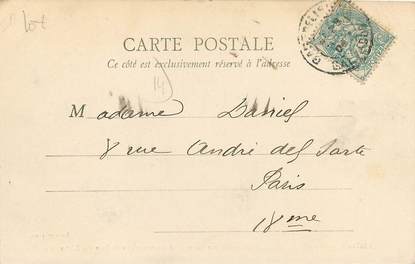 lot
CARTE POSTALE
Ce côté est exclusivement réservé à l'adresse
14
Madame Daniel
8 rue André del Sarte
Paris
18me